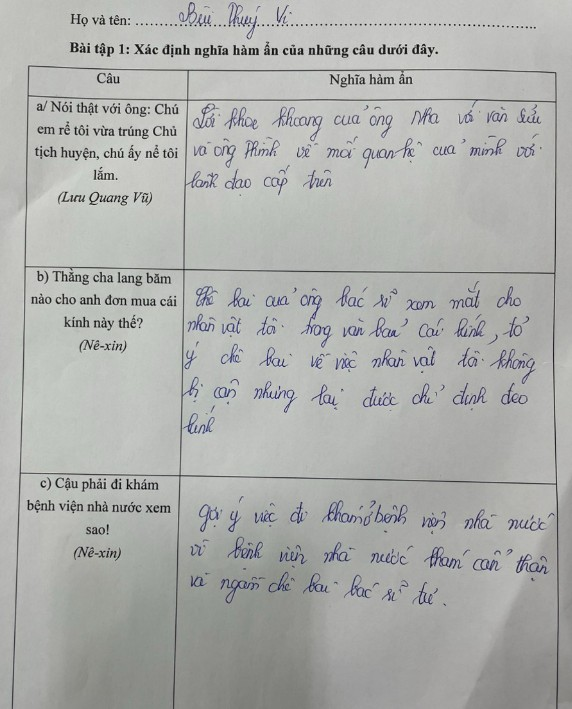 Họ và tên: Bùi Thuý Vi
Bài tập 1: Xác định nghĩa hàm ẩn của những câu dưới đây.
Câu
Nghĩa hàm ẩn
a/ Nói thật với ông: Chú
em rể tôi vừa trúng Chủ
tịch huyện, chú ấy nể tôi
lắm.
(Lưu Quang Vũ)
Lời khoe khoang của ông Nha với văn Sửu
và ông Thình về mối quan hệ của mình với
lãnh đạo cấp trên
b) Thằng cha lang băm
nào cho anh đơn mua cái
kính này thế?
(Nê-xin)
Chê bai của ông bác sĩ xem mắt cho
nhân vật tôi trong văn bản Cái kính, tỏ
ý chê bai về việc nhân vật tôi không
bị cận nhưng lại được chỉ định đeo
kính
c) Cậu phải đi khám
bệnh viện nhà nước xem
sao!
(Nê-xin)
gợi ý việc đi khám ở bệnh viện nhà nước
vì bệnh viện nhà nước thăm cẩn thận
và ngầm chê bai bác sĩ tư.